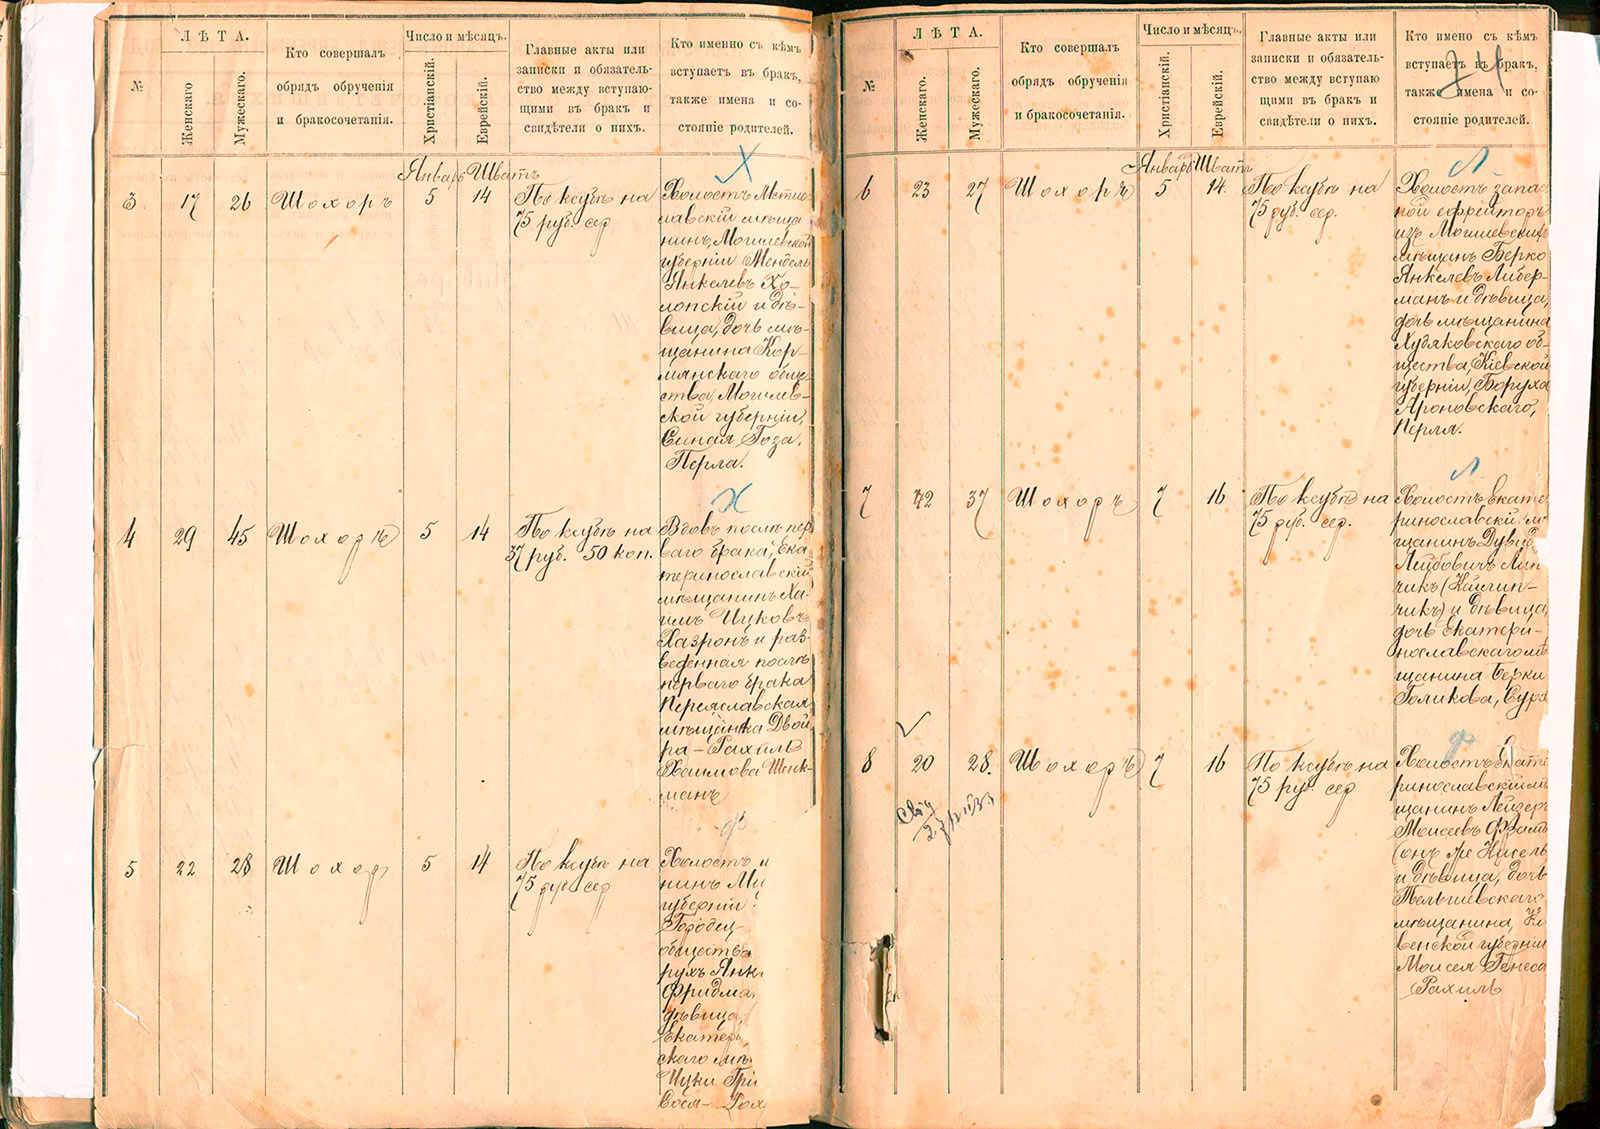 ЛѢТА.
№
Женскаго
Мужескаго.
Кто совершалъ
обрядъ обрученія
и бракосочетанія.
Число и мѣсяцъ.
Христіанскій.
Еврейскій.
Главные акты или
записки и обязатель-
ство между вступаю-
щими въ бракъ и
свидѣтели о нихъ.
Кто именно съ кѣмъ
вступаетъ въ бракъ,
также имена и со-
стояніе родителей.
Январь Шватъ
Х
3 17 26 Шохоръ 5 14
По ксубѣ на
75 руб. сер
Холостъ Мсти
славскій мѣща
нинъ, Могилевской
губерніи Мендель
Янкелевъ Хо-
лопскій и дѣ-
вица, дочь мѣ-
щанина Кор-
мянскаго обще-
ства, Могилев-
ской губерніи,
Синая Гоза,
Перла.
Х
4 29 45 Шохоръ 5 14
По ксубѣ на
37 руб. 50 коп.
Вдовъ послѣ пер
ваго брака, Ека
теринославскій
мѣщанинъ Ха-
имъ Ицковъ
Хазронъ и раз-
веденная послѣ
перваго брака
Переяславская
мѣщанка Двой
ра-Рахиль
Хаимова Шенк-
манъ
ф
5 22 28 Шохор 5 14
По ксубѣ на
75 руб сер
Холостъ м
нинъ Ми
губерніи
Городец
обществ
рухъ Янк
Фридма
дѣвица,
Екатери
скаго мѣ
Ицки Гри
Рох
ЛѢТА.
№
Женскаго.
Мужескаго.
Кто совершалъ
обрядъ обрученія
и бракосочетанія.
Число и мѣсяцъ.
Христіанскій.
Еврейскій.
Главные акты или
записки и обязатель-
ство между вступаю
щими въ бракъ и
свидѣтели о нихъ.
Кто имено съ кѣмъ
вступаетъ въ бракъ,
также имена и со-
стояніе родителей.
Январь Шватъ
Л
6 23 27 Шохоръ 5 14
По ксубѣ на
75 руб. сер.
Холостъ запас
ной ефрейторъ
изъ Могилевскихъ
мѣщан Берко
Янкелевъ Либер-
манъ и дѣвица,
дочь мѣщанина
Худяковскаго об-
щества, Кіевской
губерніи, Боруха
Ароновскаго,
Перля.
Л
7 42 37 Шохоръ 7 16
По ксубѣ на
75 руб. сер.
Холостъ Екате
ринославскій м
щанинъ Дувид
Лейбовичъ Лип
чикъ (Кейлин-
чикъ) и дѣвица,
дочь Екатери-
нославскаго мѣ
щанина Берки
Голикова, Сура
ф
8 20 28. Шохоръ 7 16
По ксубѣ на
75 ру. сер
Холостъ Екате
ринославскій мѣ
щанинъ Лейзеръ
Моисеевъ
(онъ же Нисель
и дѣвица, дочь
Тельшевскаго
мѣщанина, Ко
венской губерніи
Моисея Генеса
Рахиль